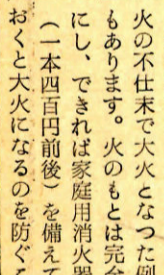 火の不仕末で大火となった例
もあります。火のもとは完全
にし、できれば家庭用消火器
（一本四百円前後）を備えて
おくと大火になるのを防ぐこ